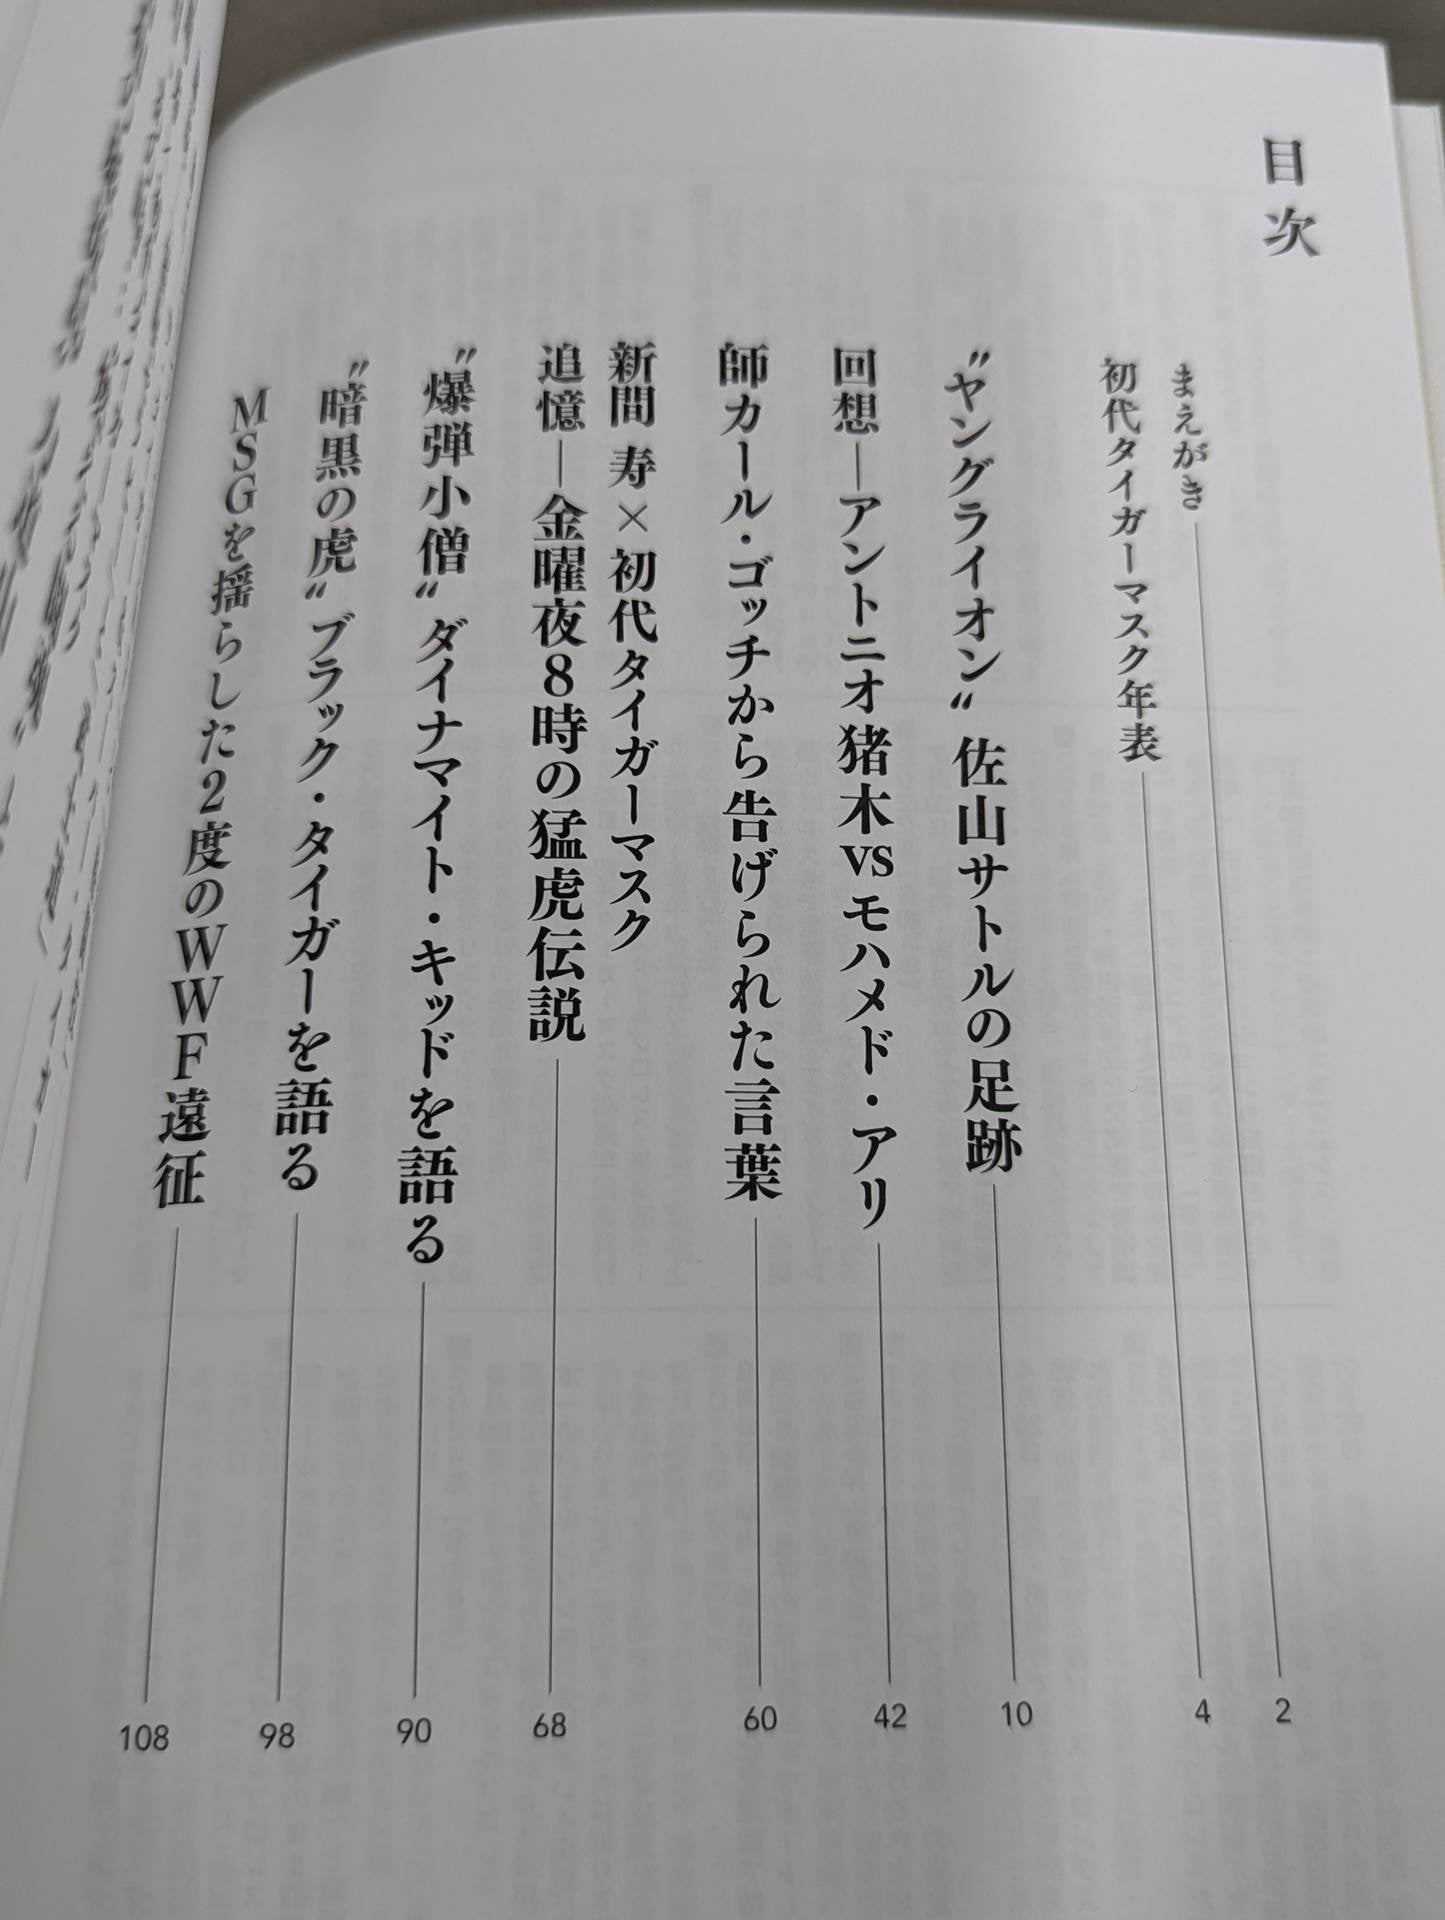 目次
まえがき 2
初代タイガーマスク年表 4
〝ヤングライオン〟佐山サトルの足跡 10
回想―アントニオ猪木vsモハメド・アリ 42
師カール・ゴッチから告げられた言葉 60
新間 寿×初代タイガーマスク
追憶―金曜夜8時の猛虎伝説 68
〝爆弾小僧〟ダイナマイト・キッドを語る 90
〝暗黒の虎〟ブラック・タイガーを語る 98
MSGを揺らした2度のWWF遠征 108